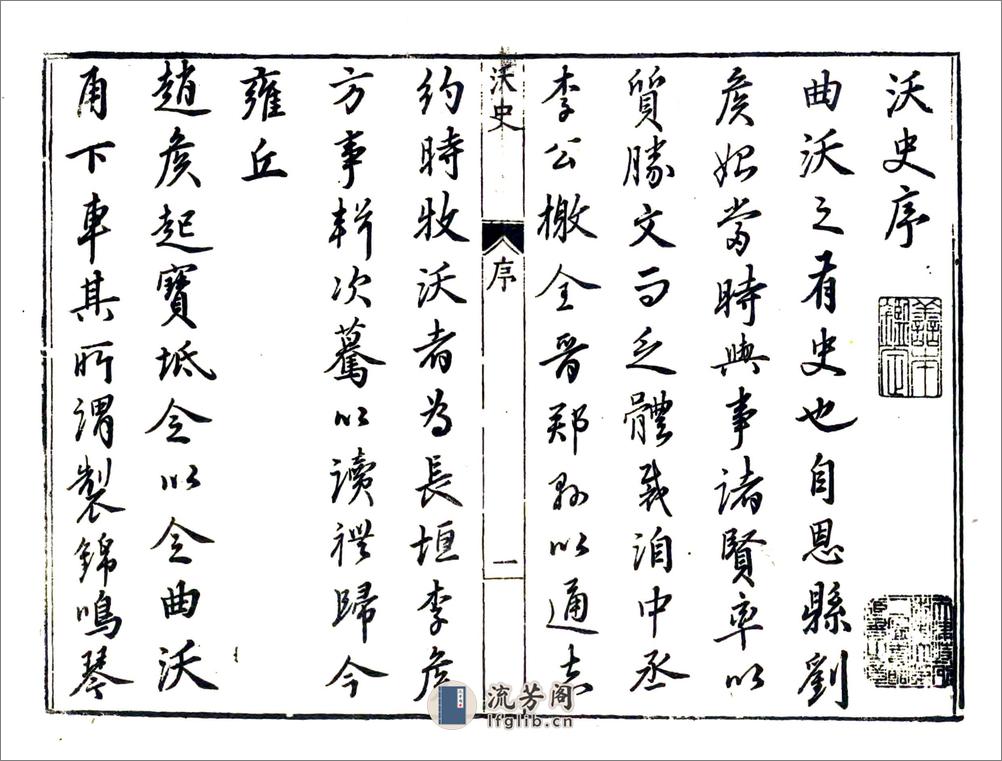 沃史序
曲沃之有史也自恩縣劉
矦始當時與事諸賢率以
質勝文而乏體裁洎中丞
李公檄全晉郡縣以通志
沃史
序
一
約時牧沃者為長垣李矦
方事輯次驀以讀禮歸今
雍丘
趙矦起寶坻令以令曲沃
甫下車其所謂製錦鳴琴
流芳阁
lfglib.cn